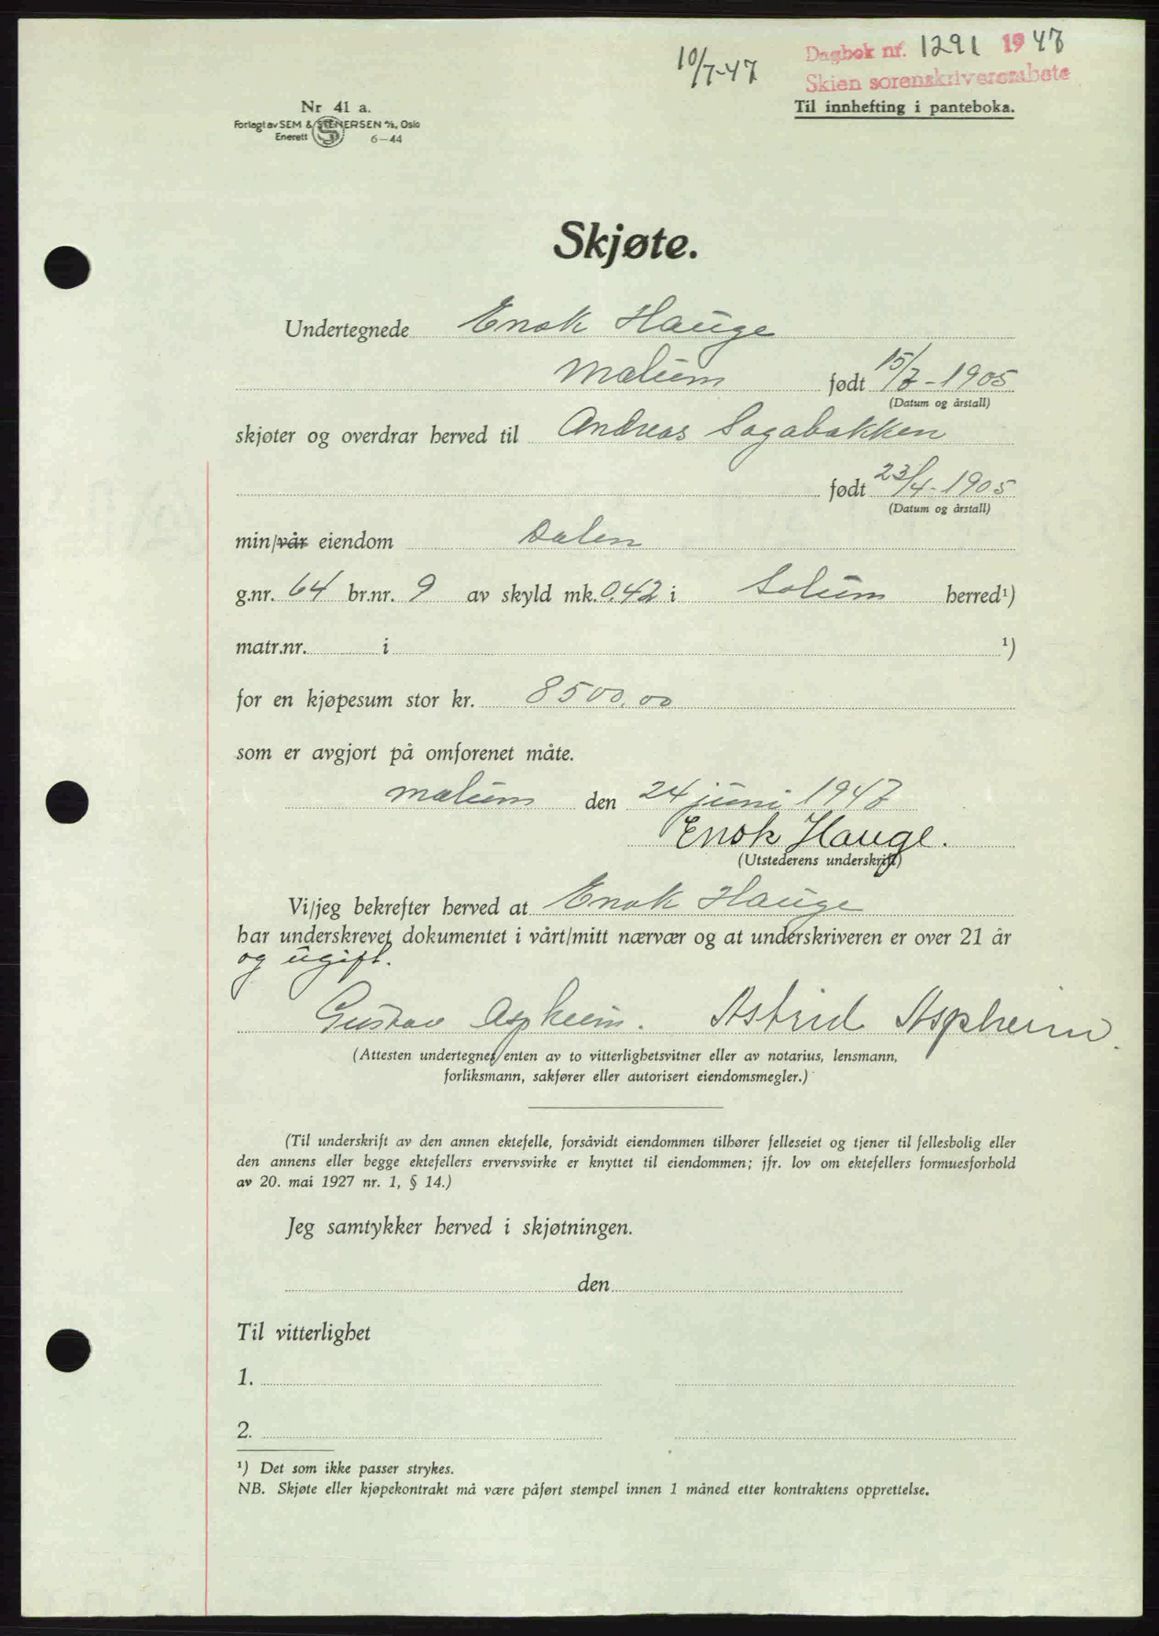 10/7-47
Dagbok nr. 1291 1947
Skien sorenskriverembete
Til innhefting i panteboka.
Nr 41 a.
Forlagt av SEM & STENERSEN A/S, Oslo
Enerett 6-44
Skjøte.
Undertegnede Enok Hauge
Mælum født 15/7-1905
(Datum og årstall)
skjøter og overdrar herved til Andreas Sagabakken
født 23/4-1905
(Datum og årstall)
min/vår eiendom Dalen
g.nr. 64 br.nr. 9 av skyld mk. 0.42 i Solum herred¹)
matr.nr. i ¹)
for en kjøpesum stor kr. 8500.00
som er avgjort på omforenet måte.
Mælum den 24 juni 1947
Enok Hauge.
(Utstederens underskrift)
Vi/jeg bekrefter herved at Enok Hauge
har underskrevet dokumentet i vårt/mitt nærvær og at underskriveren er over 21 år
og ugift.
Gustav Aspheim. Astrid Aspheim.
(Attesten undertegnes enten av to vitterlighetsvitner eller av notarius, lensmann,
forliksmann, sakfører eller autorisert eiendomsmegler.)
(Til underskrift av den annen ektefelle, forsåvidt eiendommen tilhører felleseiet og tjener til fellesbolig eller
den annens eller begge ektefellers ervervsvirke er knyttet til eiendommen; jfr. lov om ektefellers formuesforhold
av 20. mai 1927 nr. 1, § 14.)
Jeg samtykker herved i skjøtningen.
den
Til vitterlighet
1.
2.
¹) Det som ikke passer strykes.
NB. Skjøte eller kjøpekontrakt må være påført stempel innen 1 måned etter kontraktens opprettelse.